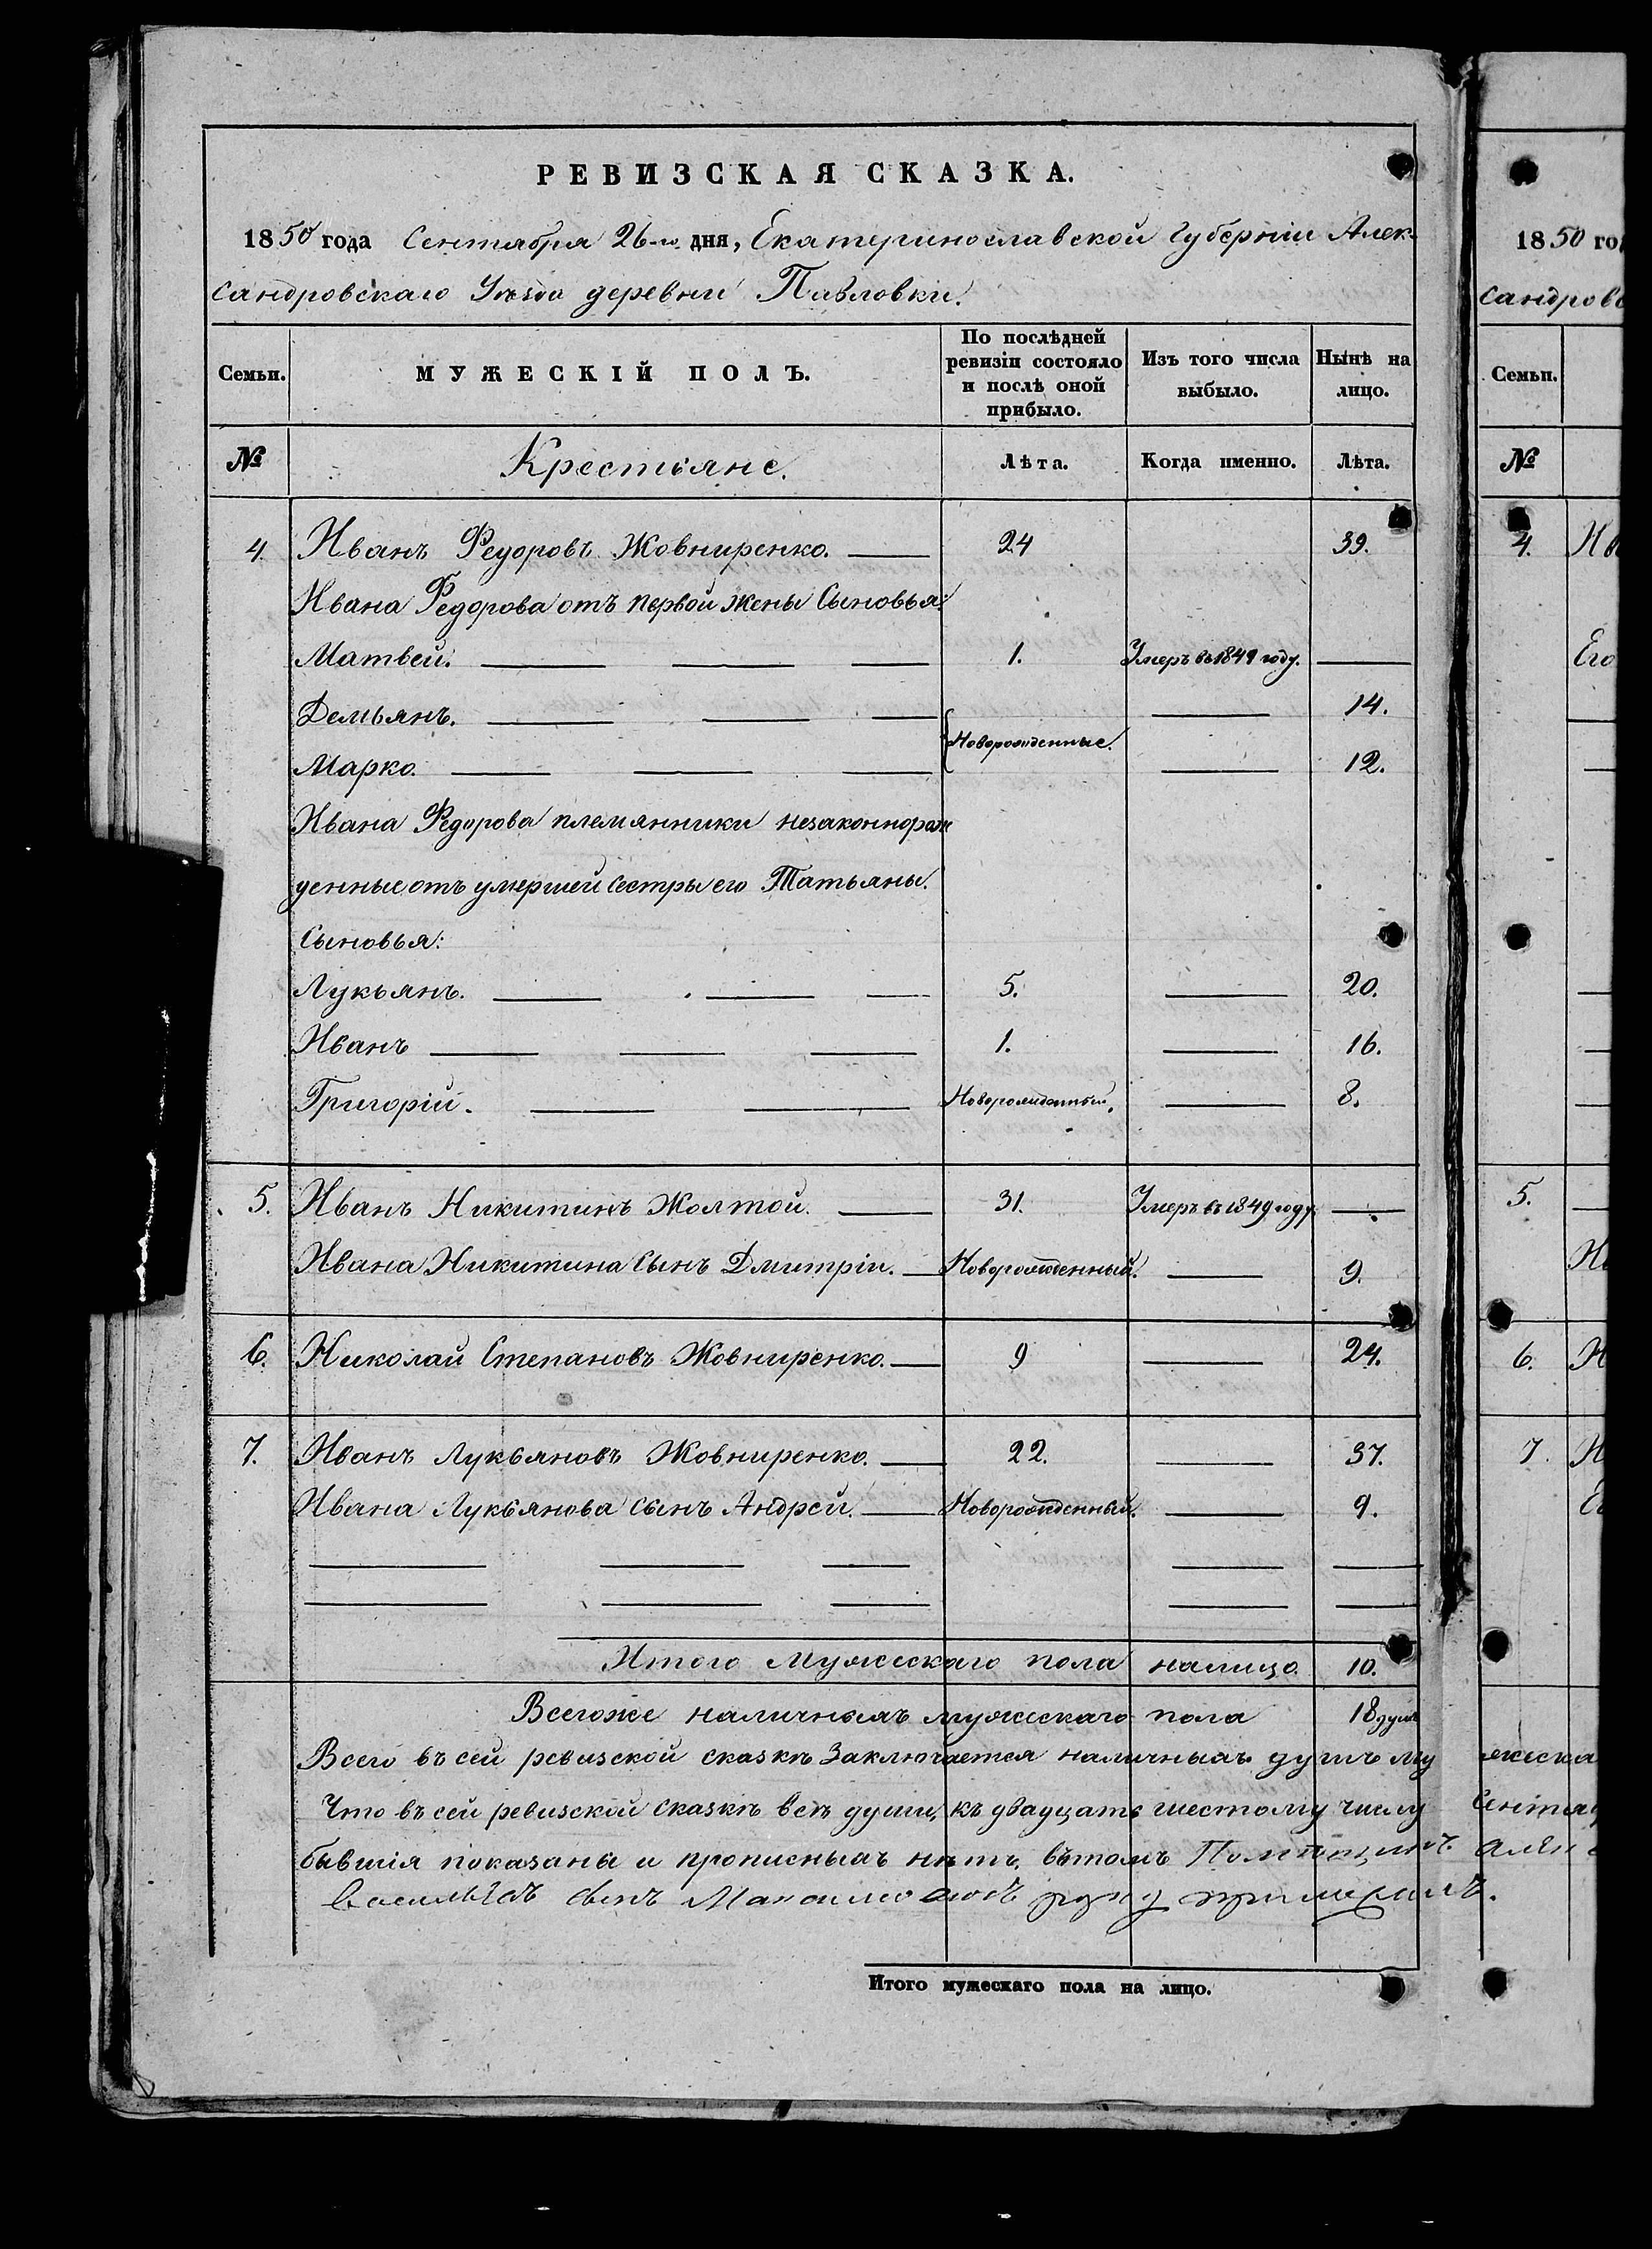 РЕВИЗСКАЯ СКАЗКА.
1850 года Сентября 26-го дня, Екатеринославской Губерніи Алек-
сандровскаго Уѣзда деревни Павловки.
Семьи. МУЖЕСКІЙ ПОЛЪ. По послѣдней ревизіи состояло и послѣ оной прибыло. Изъ того числа выбыло. Нынѣ на лицо.
№ Крестьяне. Лѣта. Когда именно. Лѣта.
4. Иванъ Федоровъ Жовниренко. 24 39.
Ивана Федорова отъ первой жены Сыновья:
Матвей. 1. Умеръ въ 1849 году.
Демьянъ. 14.
Новорожденные.
Марко. 12.
Ивана Федорова племянники незаконнорож
денные отъ умершей сестры его Татьяны.
Сыновья:
Лукьянъ. 5. 20.
Иванъ 1. 16.
Григорій. Новорожденный. 8.
5. Иванъ Никитинъ Жолтой. 31. Умеръ въ 1849 году
Ивана Никитина Сынъ Дмитрій. Новорожденный. 9.
6. Николай Степановъ Жовниренко. 9 24.
7. Иванъ Лукьяновъ Жовниренко. 22. 37.
Ивана Лукьянова сынъ Андрей. Новорожденный. 9.
Итого мужескаго пола налицо 10.
Всегоже наличныхъ мужескаго пола 18 душъ
Всего въ сей ревизской сказкѣ Заключается наличныхъ душъ му
Что въ сей ревизской сказкѣ всѣ души, къ двадцать шестому числу
бывшія показаны и прописныхъ нѣтъ, вътомъ
сынъ руку
Итого мужескаго пола на лицо.
1850 го
сандров
Семьи.
№
4. Ив
Его
5.
Ив
6. Н
7. И
Ег
жеска
Сентя